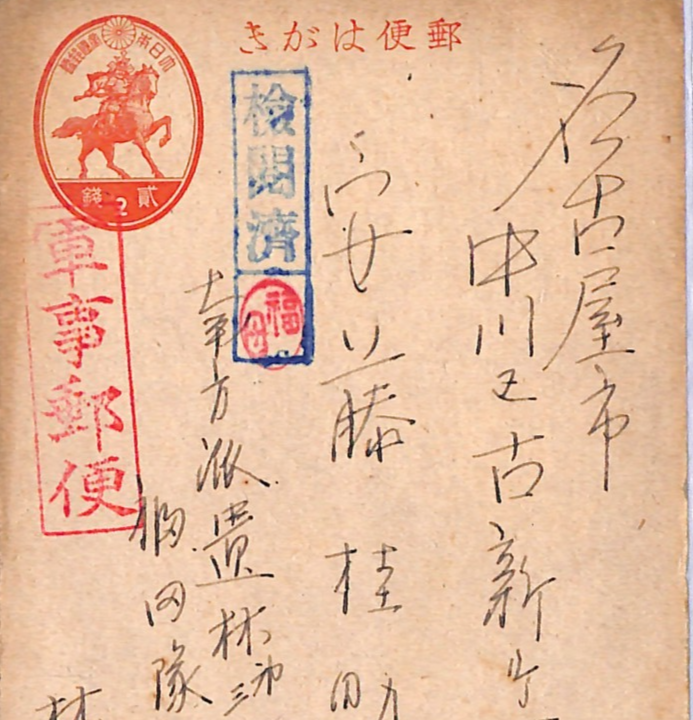 郵便はがき
大日本帝國郵便
貳錢
2
検閲済
軍事郵便
名古屋市
中川区古新町
安藤桂助
方派遣林
隊
林